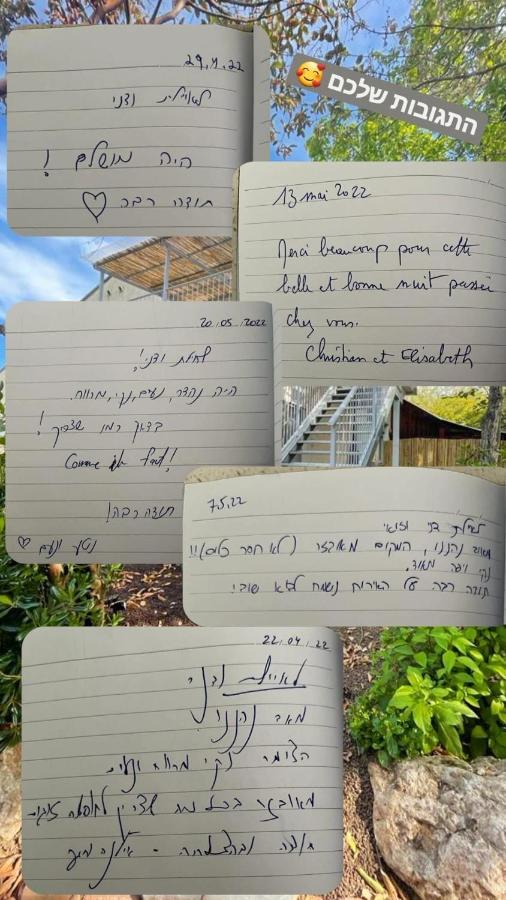 התגובות שלכם
29.4.22
לאיילת ודני
היה מושלם!
תודה רבה
13 mai 2022
Merci beaucoup pour cette
belle et bonne nuit passée
chez vous.
Christian et Elisabeth
20.05.2022
לאילת ודני!
היה נהדר, נעים, נקי, מרווח.
בדיוק כמו שצריך!
Comme il faut!
תודה רבה!
נטע ונעם
7.5.22
לאילת דני
מאוד נהננו, המקום מאובזר (לא חסר כלום)!!
נקי ויפה מאוד.
תודה רבה על האירוח נשמח לבוא שוב!
22.04.22
לאיילת ודני
מאד נהננו
הצימר נקי מרווח ונעים
מאובזר בכל מה שצריך
תודה ובהצלחה -